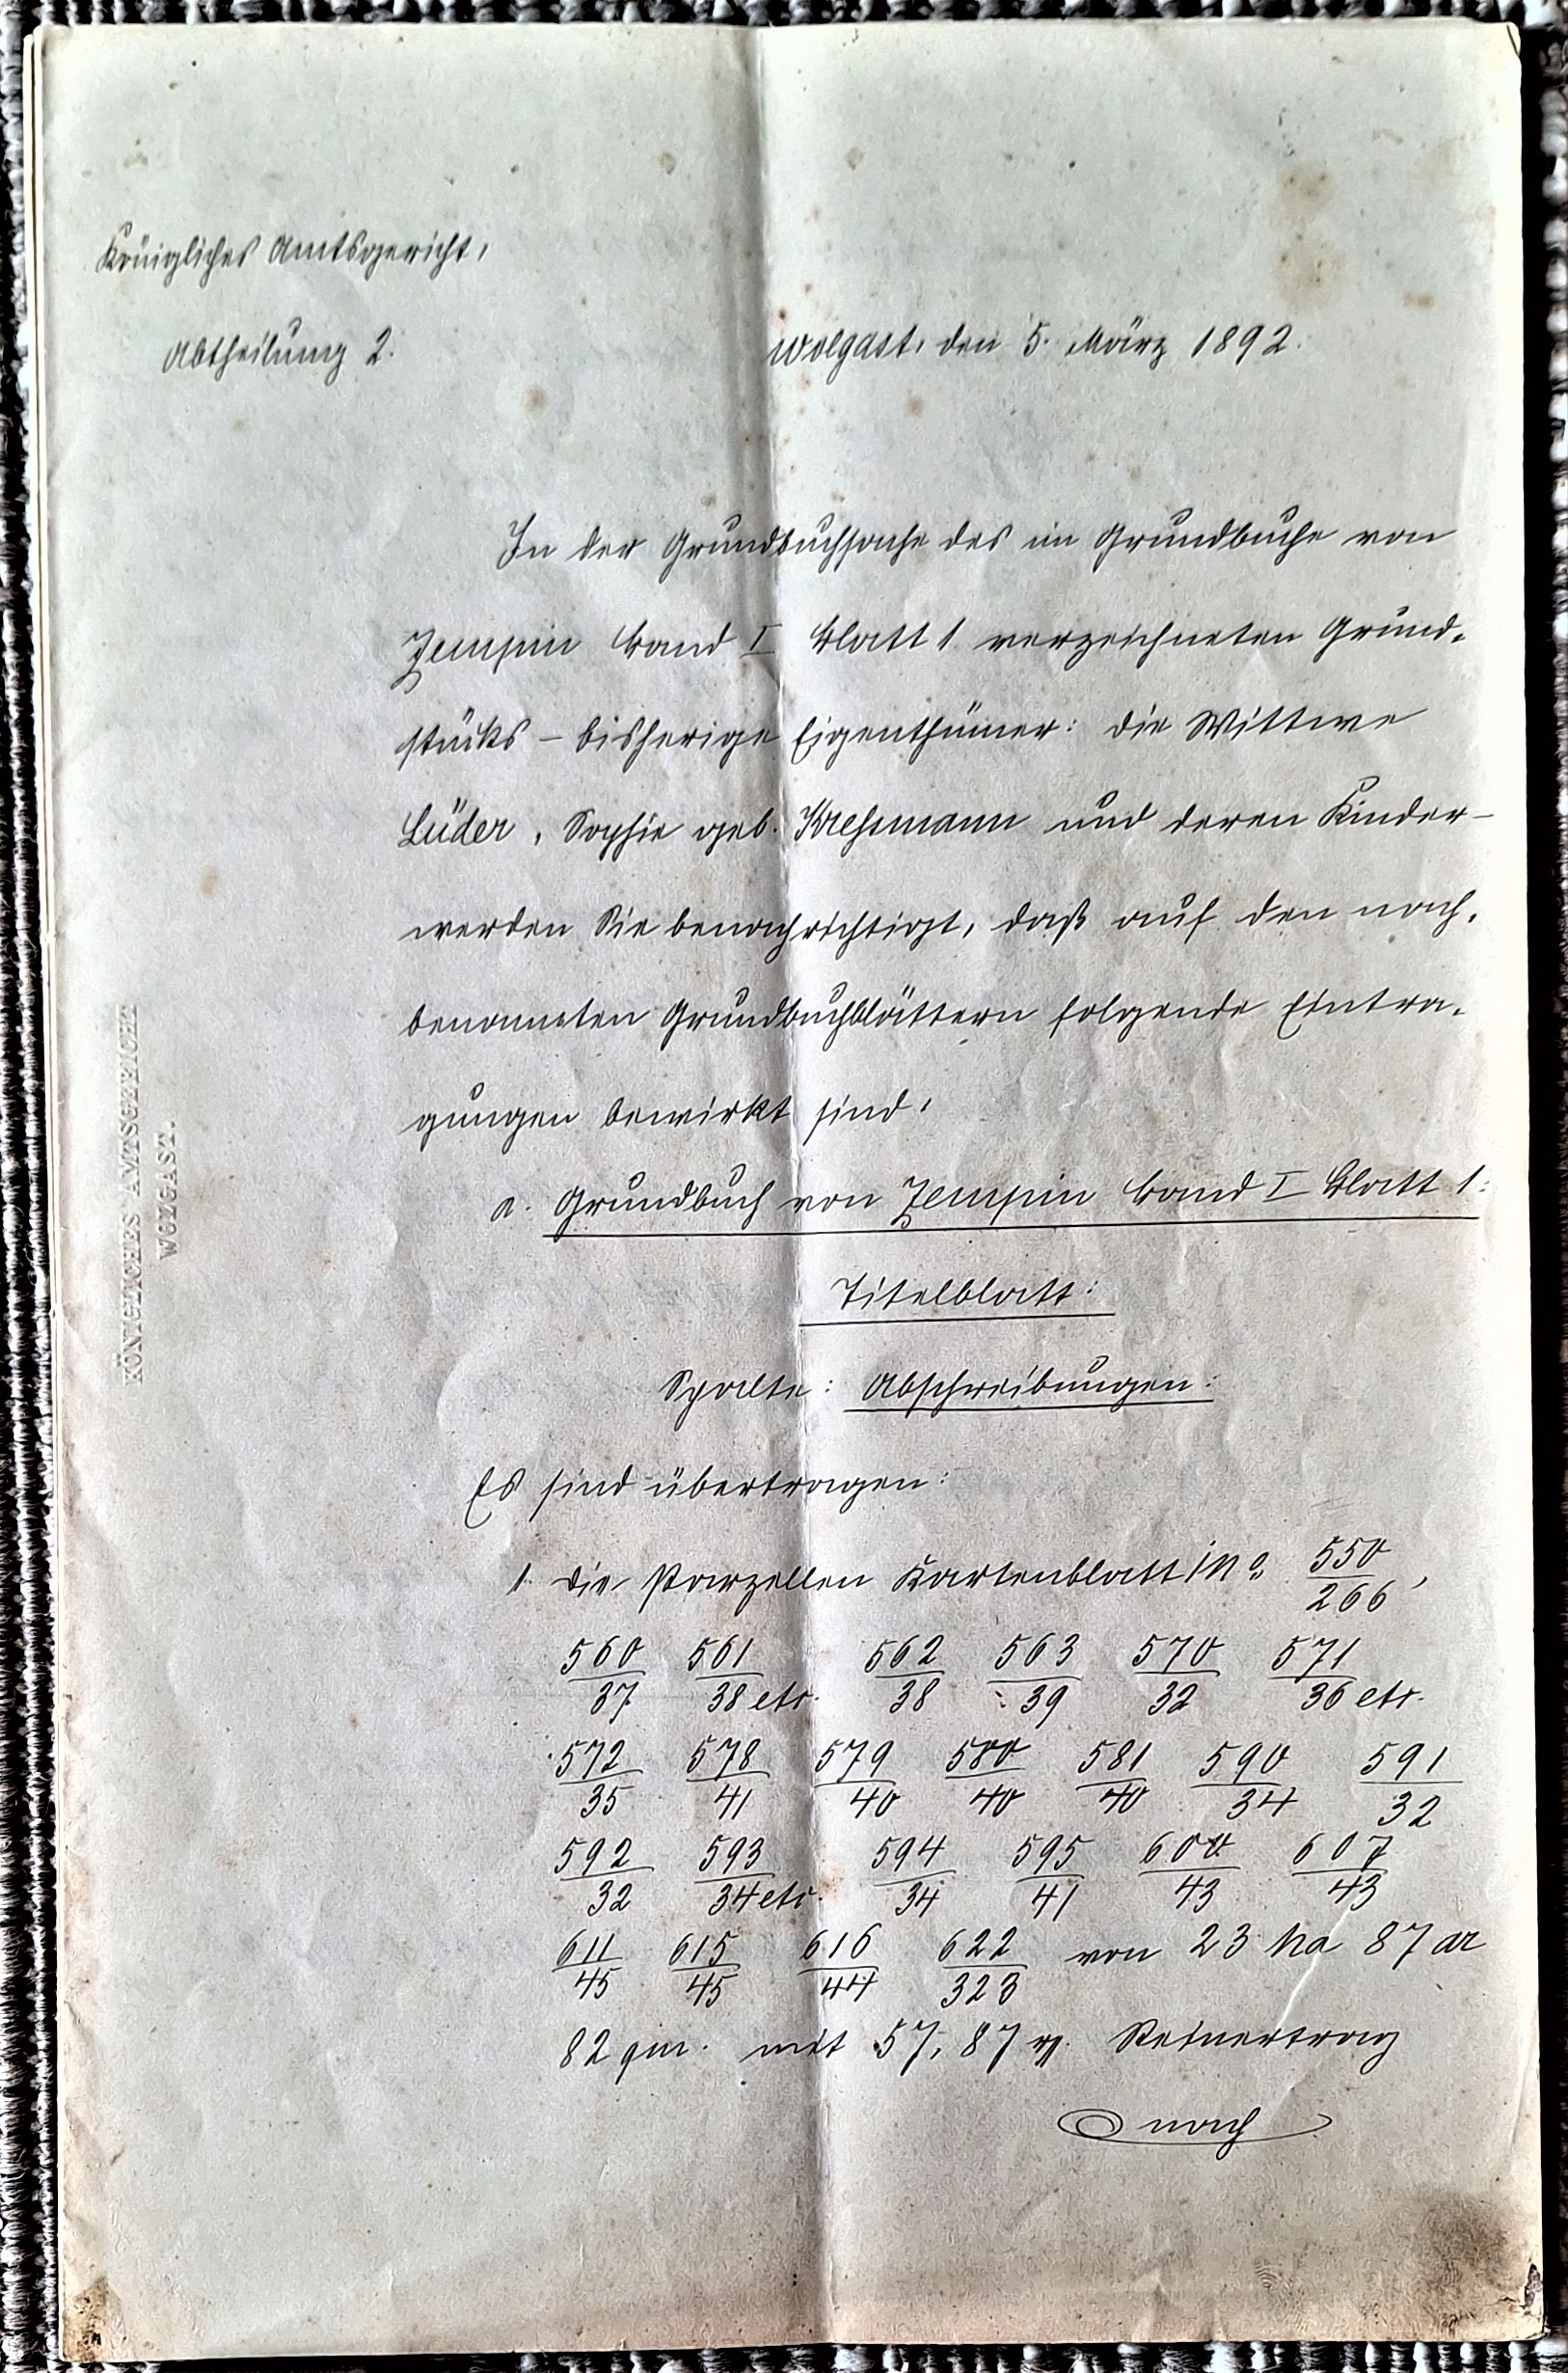 Königliches Amtsgericht,
Abtheilung 2.
Wolgast, den 5. März 1892.
In der Grundbuchsache des im Grundbuche von
Zempin Band I Blatt 1 verzeichneten Grund-
stücks – bisherige Eigenthümer: die Wittwe
Lüder, Sophie geb. Kressmann und deren Kinder –
werden Sie benachrichtigt, daß auf den nach-
benannten Grundbuchblättern folgende Eintra-
gungen bewirkt sind:
a. Grundbuch von Zempin Band I Blatt 1:
Titelblatt:
Spalte: Abschreibungen:
Es sind übertragen:
1. die Parzellen Kartenblatt 1 No 550/266,
560/37 561/38 etc. 562/38 563/39 570/32 571/36 etc.
572/35 578/41 579/40 580/40 581/40 590/34 591/32
592/32 593/34 etc. 594/34 595/41 600/43 607/43
611/45 615/45 616/44 622/323 von 23 ha 87 ar
82 qm. mit 57,87 Reinertrag
nach
KÖNIGLICHES AMTSGERICHT
WOLGAST.